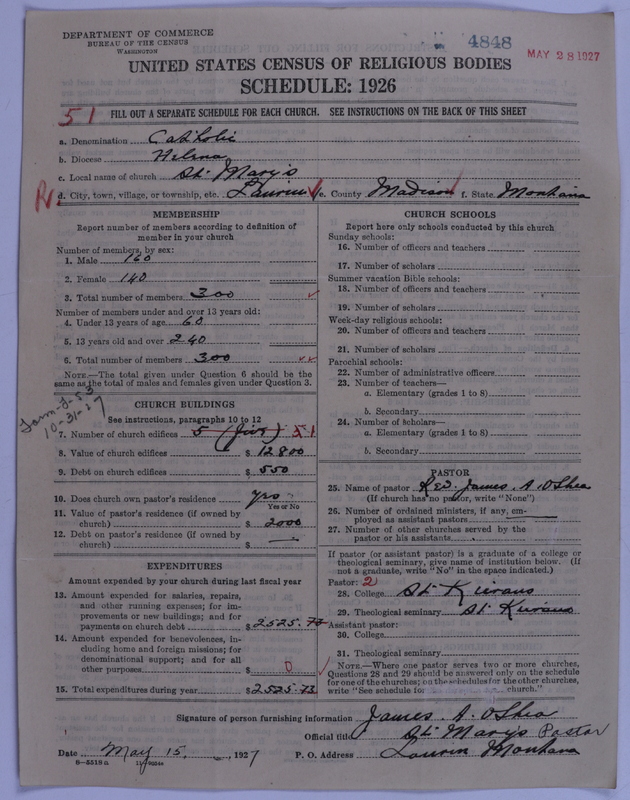 DEPARTMENT OF COMMERCE
BUREAU OF THE CENSUS
WASHINGTON
4848
MAY 28 1927
UNITED STATES CENSUS OF RELIGIOUS BODIES
SCHEDULE: 1926
51 FILL OUT A SEPARATE SCHEDULE FOR EACH CHURCH. SEE INSTRUCTIONS ON THE BACK OF THIS SHEET
a. Denomination Catholic
b. Diocese Helena
c. Local name of church St. Mary's
R d. City, town, village, or township, etc. Laurin e. County Madison f. State Montana
MEMBERSHIP
Report number of members according to definition of member in your church
Number of members, by sex:
1. Male 160
2. Female 140
3. Total number of members 300
Number of members under and over 13 years old:
4. Under 13 years of age 60
5. 13 years old and over 240
6. Total number of members 300
NOTE.—The total given under Question 6 should be
same as the total of males and females given under Question 3.
Form-J-53
10-31-27
CHURCH BUILDINGS
See instructions, paragraphs 10 to 12
7. Number of church edifices 5 (five) 51
8. Value of church edifices $ 12800
9. Debt on church edifices $ 550
10. Does church own pastor's residence yes
Yes or No
11. Value of pastor's residence (if owned by
church) $ 2000
12. Debt on pastor's residence (if owned by
church) $ —
EXPENDITURES
Amount expended by your church during last fiscal year
13. Amount expended for salaries, repairs,
and other running expenses; for im-
provements or new buildings; and for
payments on church debt $ 2525.73
14. Amount expended for benevolences, in-
cluding home and foreign missions; for
denominational support; and for all
other purposes $ 0
15. Total expenditures during year $ 2525.73
CHURCH SCHOOLS
Report here only schools conducted by this church
Sunday schools:
16. Number of officers and teachers
17. Number of scholars
Summer vacation Bible schools:
18. Number of officers and teachers
19. Number of scholars
Week-day religious schools:
20. Number of officers and teachers
21. Number of scholars
Parochial schools:
22. Number of administrative officers
23. Number of teachers—
a. Elementary (grades 1 to 8)
b. Secondary
24. Number of scholars—
a. Elementary (grades 1 to 8)
b. Secondary
PASTOR
25. Name of pastor Rev. James. A. O'Shea
(If church has no pastor, write "None")
26. Number of ordained ministers, if any, em-
ployed as assistant pastors
27. Number of other churches served by the
pastor or his assistants
If pastor (or assistant pastor) is a graduate of a college or
theological seminary, give name of institution below. (If
not a graduate, write "No" in the space indicated.)
Pastor: 2
28. College St. Kierans
29. Theological seminary St. Kierans
Assistant pastor:
30. College
31. Theological seminary
NOTE.—Where one pastor serves two or more churches,
Questions 28 and 29 should be answered only on the schedule
for one of the churches; on the schedules for the other churches,
write "See schedule for church."
Signature of person furnishing information James. A. O'Shea
Official title St. Mary's Pastor
Date May 15, 1927 P. O. Address Laurin Montana
8-5518a